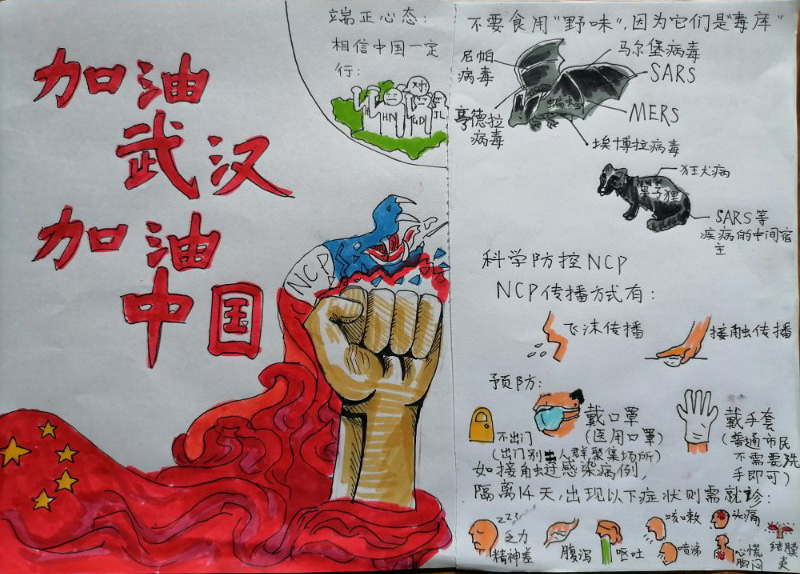 加油
武汉
加油
中国
NCP
端正心态:
相信中国一定
行:
HN
JL
不要食用"野味",因为它们是"毒库"
尼帕
病毒
马尔堡病毒
SARS
MERS
亨德拉
病毒
蝙蝠
埃博拉病毒
狂犬病
果子狸
SARS等
疾病的中间宿
主
科学防控NCP
NCP传播方式有:
飞沫传播
接触传播
预防:
不出门
(出门别去人群聚集场所)
戴口罩
(医用口罩)
戴手套
(普通市民
不需要,洗
手即可)
如接触过感染病例,
隔离14天,出现以下症状则需就诊:
zzz
乏力
精神差
腹泻
呕吐
咳嗽
喷嚏
头痛
心慌
胸闷
结膜
炎